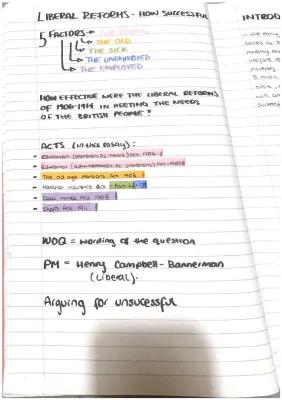 LIBERAL REFORMS - HOW SUCCESSFUL
5 FACTORS →
THE YOUNG
THE OLD
THE SICK
THE UNEMPLOYED
THE EMPLOYED
HOW EFFECTIVE WERE THE LIBERAL REFORMS
OF 1906-1914 IN MEETING THE NEEDS
OF THE BRITISH PEOPLE?
ACTS (in this essay):
- Education (provision of meals) Act 1906
- Education (administrative provisions) Act 1907
- The old age pensions Act 1908
- National insurance Act - Part 1
- Coal mines Act 1908
- Shops Act 1911
WOQ = wording of the question
PM = Henry Campbell-Bannerman
(Liberal).
Arguing for unsucessful
INTROD